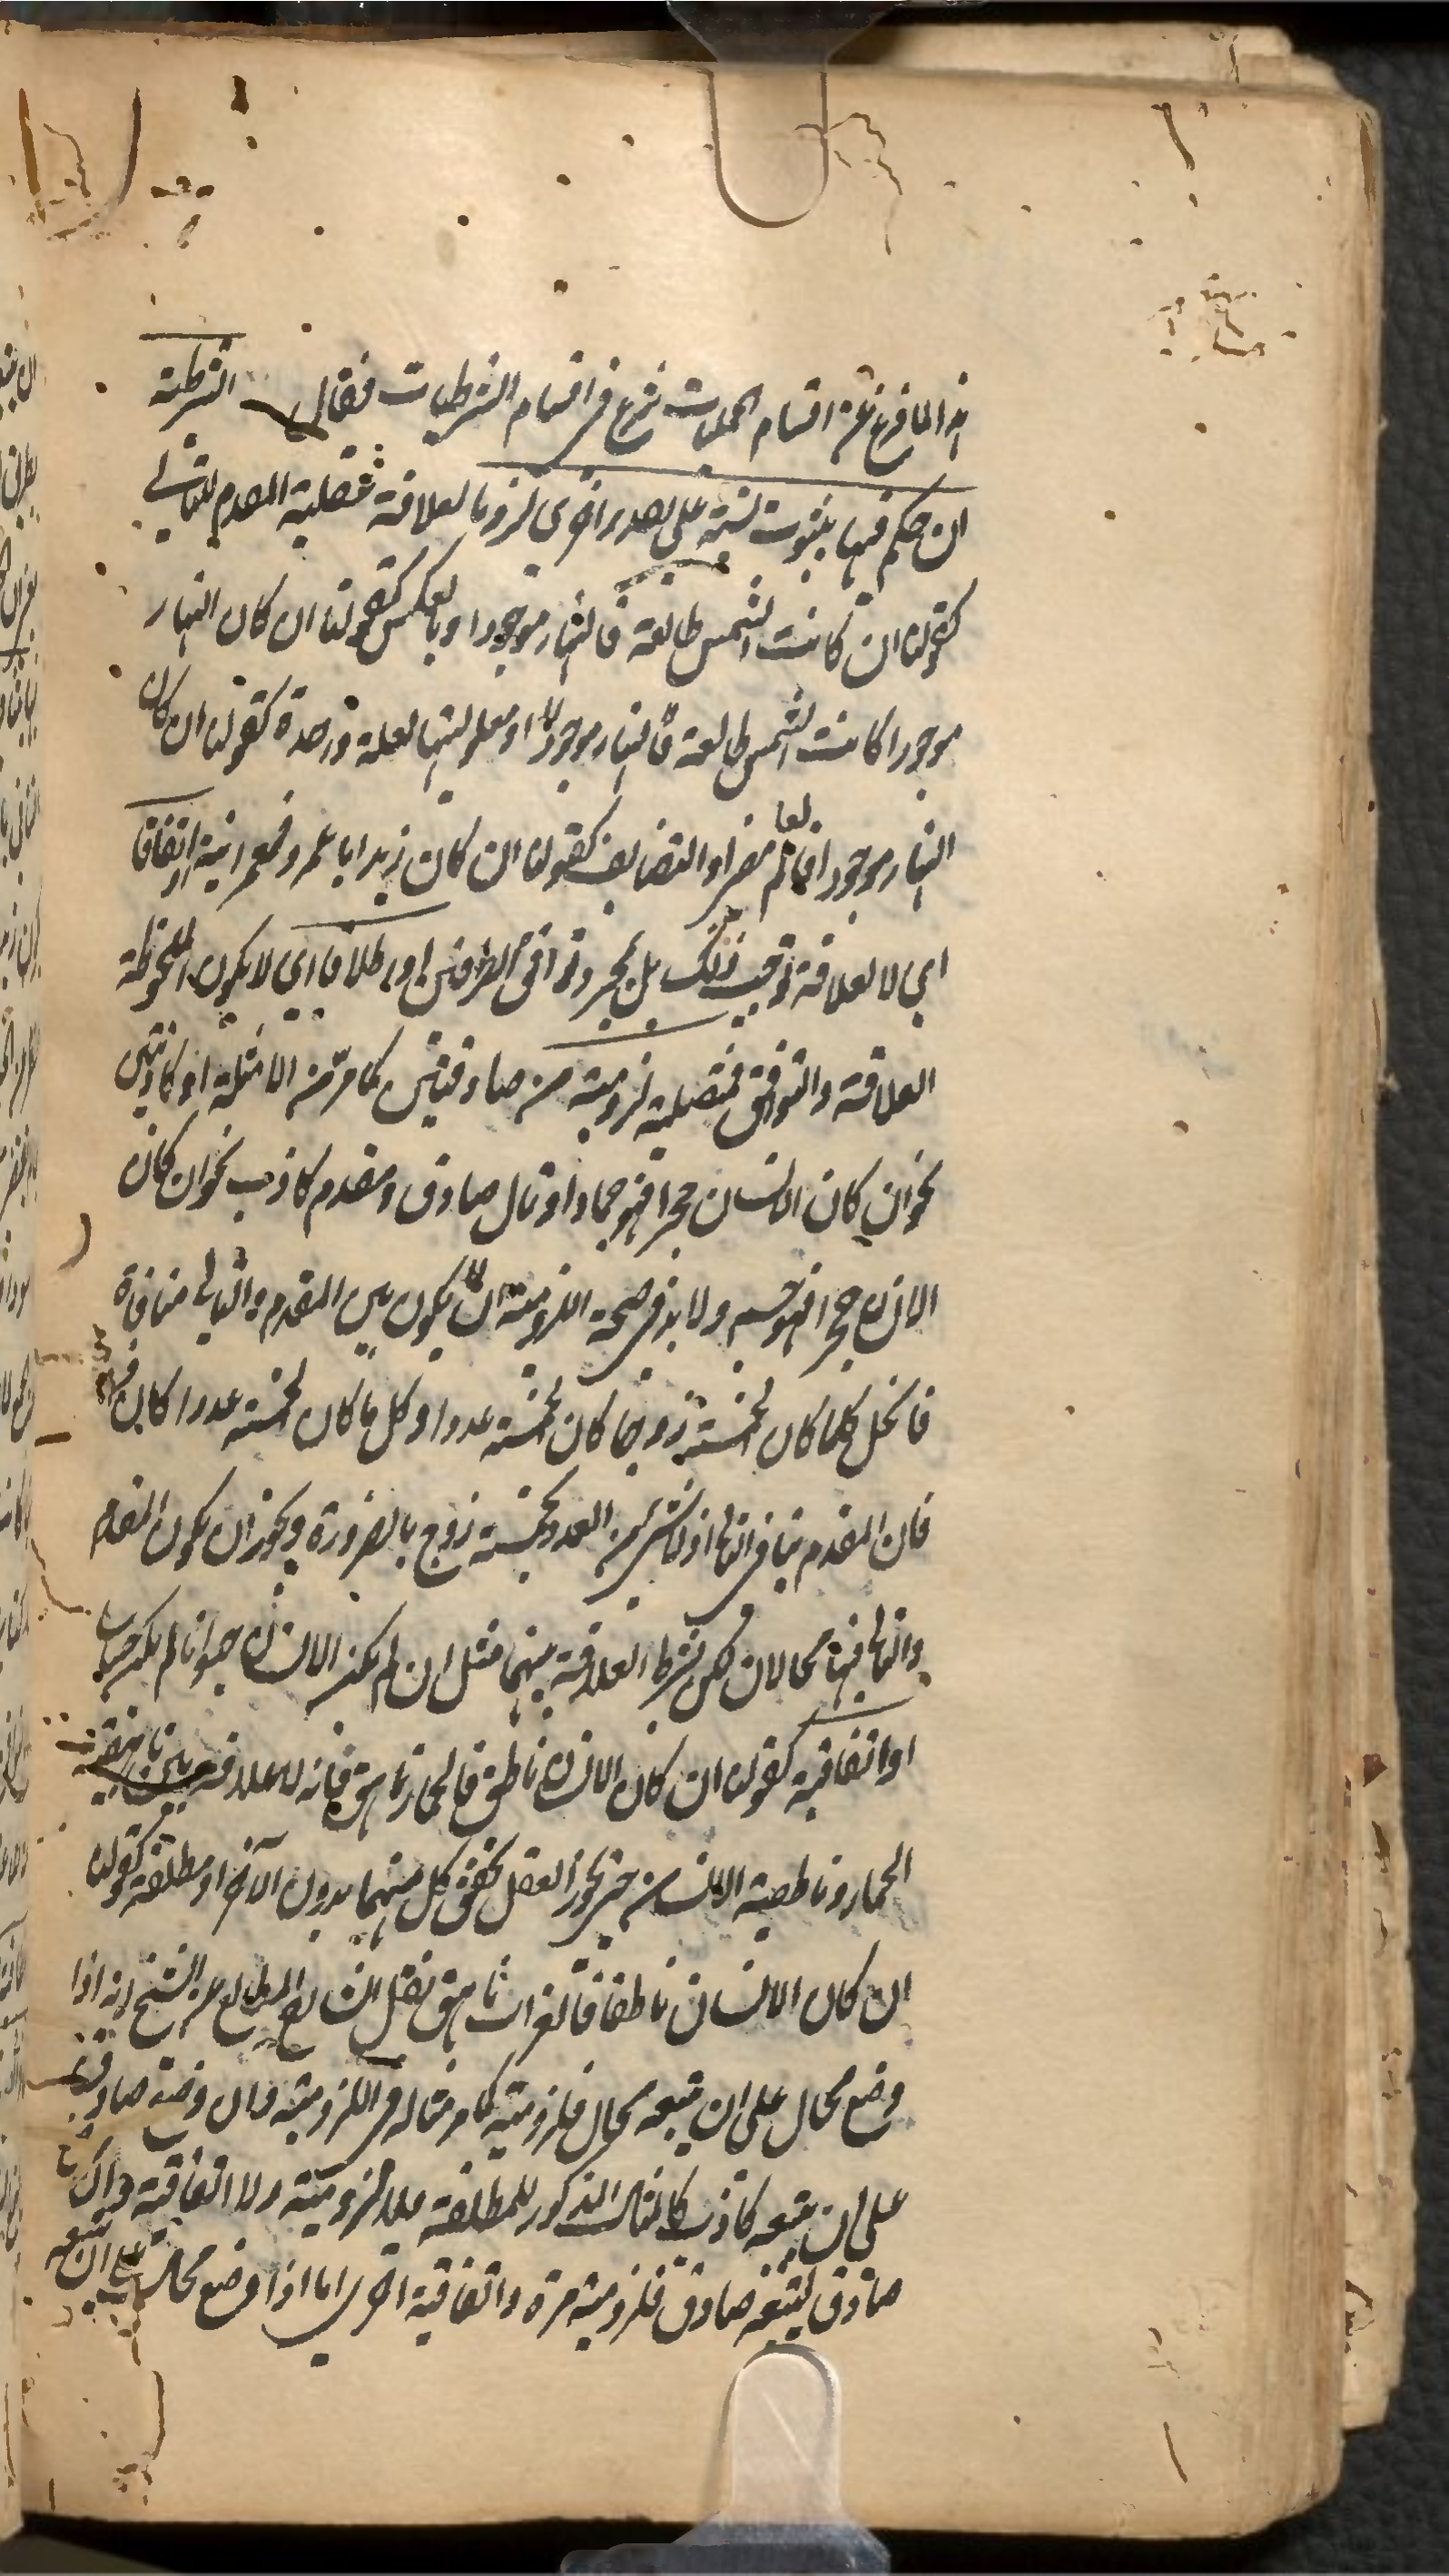 هذا لما فرغ عن اقسام الحمليات شرع في اقسام الشرطيات فقال الشرطية
ان حكم فيها بثبوت نسبة على تقدير اخرى لزوما لعلاقة علية المقدم للتالي
كقولنا ان كانت الشمس طالعة فالنهار موجودا وبالعكس كقولنا ان كان النهار
موجودا كانت الشمس طالعة فالنهار موجودا او معلوليتهما لعلة واحدة كقولنا ان كان
النهار موجودا فالعالم مضئ او التضايف كقولنا ان كان زيد ابا عمرو فعمرو ابنه او اتفاقا
اي لا لعلاقة توجب ذلك بل بمجرد توافق الطرفين او اطلاقا اي لا يكون الملحوظة
العلاقة والتوافق فمتصلة لزومية من صادقتين كما مر من الامثلة او كاذبتين
نحو ان كان الانسان حجرا فهو جماد او تال صادق ومقدم كاذب نحو ان كان
الانسان حجرا فهو جسم ولا بد في صحة اللزومية ان لا يكون بين المقدم والتالي منافاة
فانحل كلما كان الخمسة زوجا كان الخمسة عددا وكل ما كان الخمسة عددا كان
فان المقدم ينافي التالي اذ لا شئ من العدد بخمسة زوج بالضرورة ويجوز ان يكون المقدم
والتالي فيها محالان لكن بشرط العلاقة بينهما مثل ان لم يكن الانسان حيوانا لم يكن حساسا
او اتفاقية كقولنا ان كان الانسان ناطق فالحمار ناهق فانه لا علاقة بين ناهقية
الحمار وناطقية الانسان حتى يجوز العقل تحقق كل منهما بدون الآخر او مطلقة كقولنا
ان كان الانسان ناطقا فالفرس ناهق نقل الشارح المطالع عن الشيخ انه اذا
وضع محال على ان يتبعه محال فلزومية كما مر مثاله في اللزومية وان وضع صادق
على ان يتبعه كاذب كالمثال المذكور للمطلقة فلا لزومية ولا اتفاقية وان
صادق ليتبعه صادق فلزومية مرة واتفاقية اخرى اما اذا وضع محال على ان يتبعه